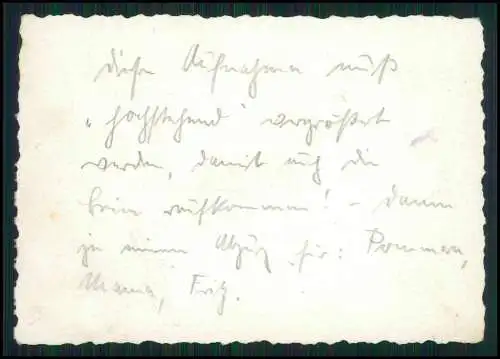 diese Aufnahmen muß
"hochstehend" vergrößert
werden, damit auch die
Beine raufkommen! – Dann
je einen Abzug für: Pommern,
Mama, Fritz.